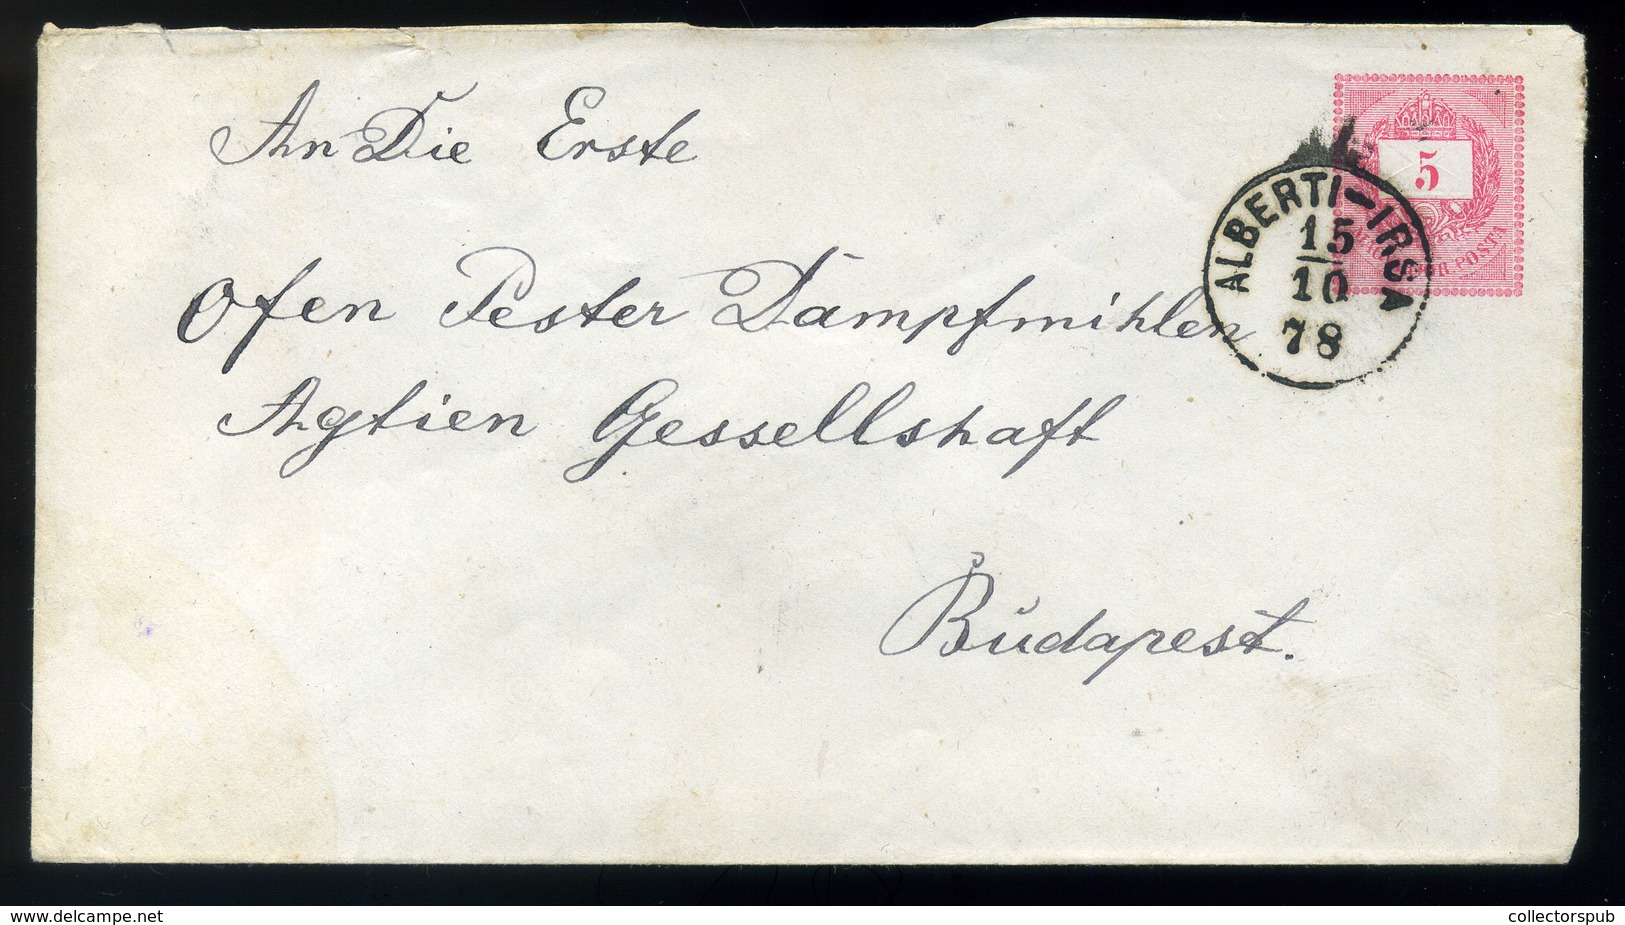 An Die Erste
Ofen Pester Dampfmihlen
Agtien Gessellshaft
Budapest.
5
POSTA
ALBERTI-IRSA
15
10
78
Downloaded at www.delcampe.net
collectorspub